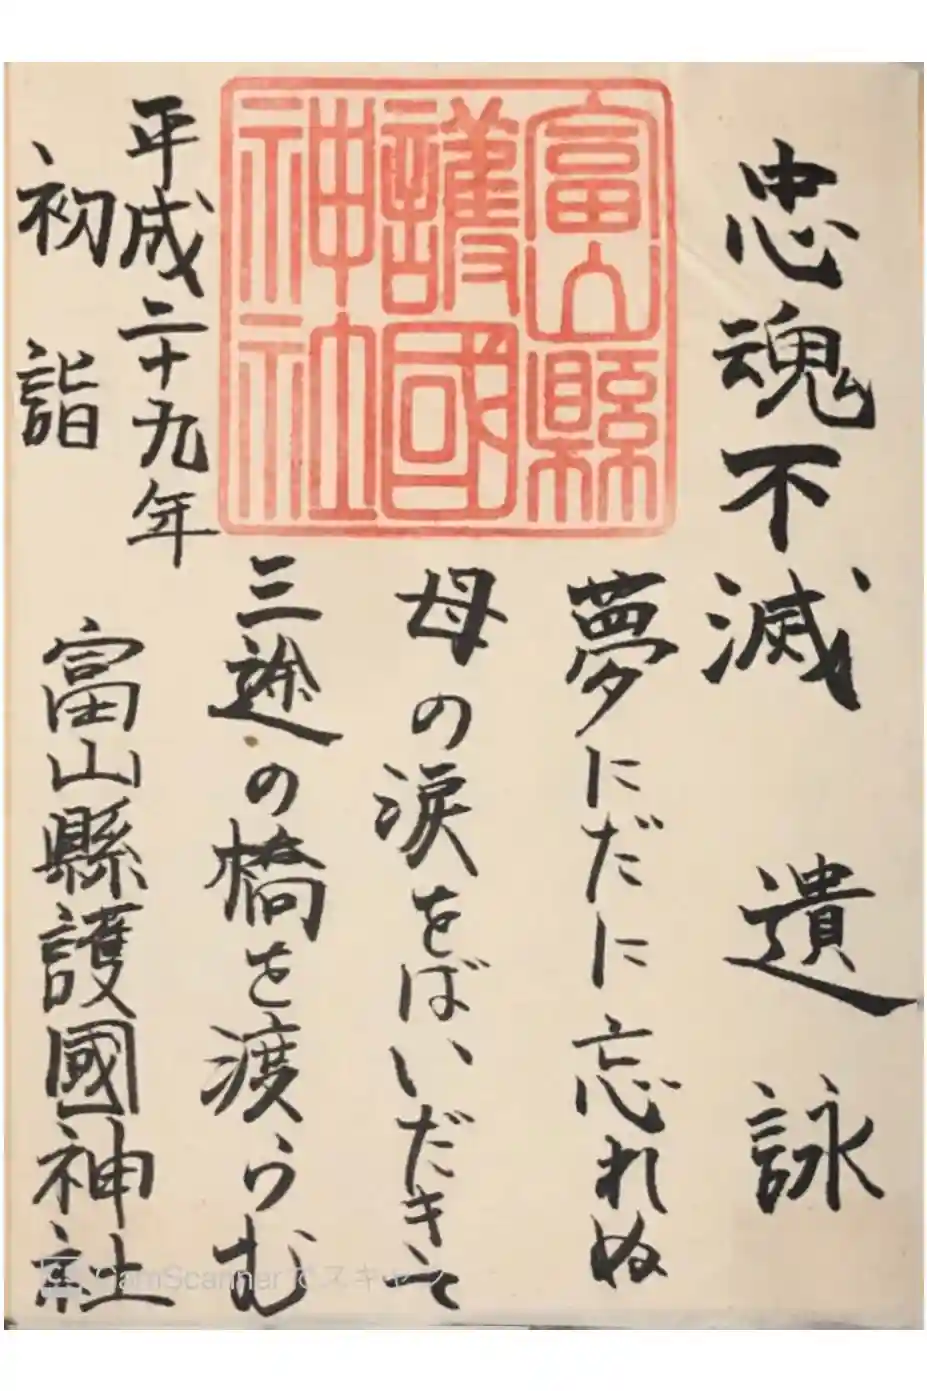 忠魂不滅　遺詠
夢にだに忘れぬ
母の涙をばいだきて
三途の橋を渡らむ
富山縣
護國
神社
平成二十九年
初詣
富山縣護國神社
CamScannerでスキャン